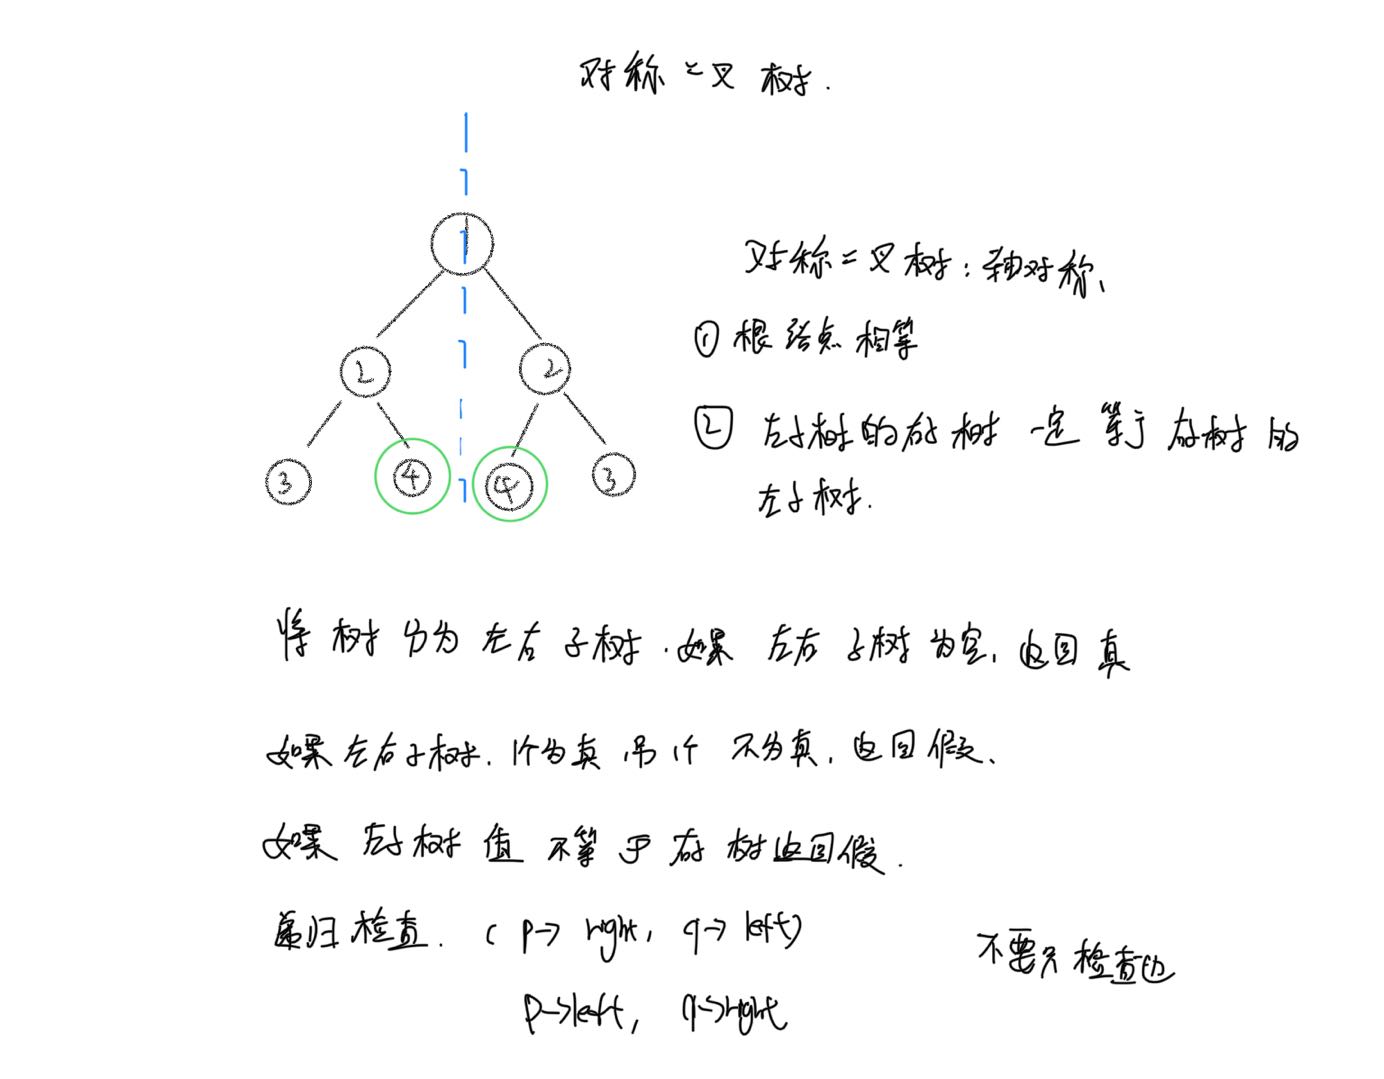 对称二叉树.
1
2
2
3
4
4
3
对称二叉树:轴对称、
① 根结点相等
② 左子树的右子树一定等于右子树的
左子树.
将树分为左右子树.如果左右子树为空,返回真
如果左右子树,1个为真,另1个不为真,返回假、
如果左子树值不等于右子树返回假.
递归检查. ( p-> right, q-> left)
p->left, q->right
不要只检查边